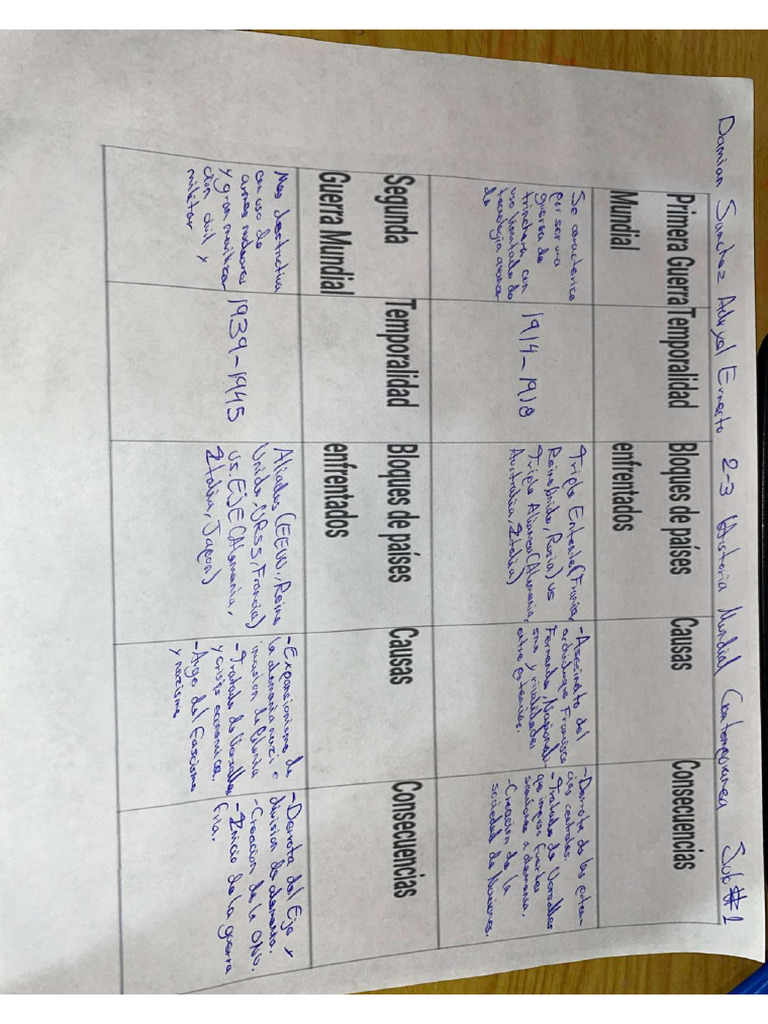 Damian Sanchez Adryel Ernesto 2-3 Historia Mundial Contemporanea Sub#1
Primera Guerra
Mundial
Temporalidad
Bloques de países
enfrentados
Causas
Consecuencias
Se caracterizo
por ser una
guerra de
trinchera con
uso limitado de
tecnología avanza
da
1914-1918
Triple Entente (Francia,
Reino Unido, Rusia) vs
Triple Alianza (Alemania,
Australia, Italia)
-Asesinato del
archiduque Francisco
Fernando, Nacionali
smo y rivalidades
entre potencias.
-Derrota de las poten-
cias centrales.
-Tratado de Versalles
que impuso fuertes
sanciones a alemania.
-Creacion de la
sociedad de Naciones.
Segunda
Guerra Mundial
Temporalidad
Bloques de países
enfrentados
Causas
Consecuencias
Mas destructiva
con uso de
armas nucleares
y gran moviliza
cion civil y
militar
1939-1945
Aliados (EEUU., Reino
Unido, URSS, Francia)
vs. EJE (Alemania,
Italia, Japon)
-Expansionismo de
la alemania nazi e
invasion de Polonia
-Tratado de Versalles
y crisis economica.
-Auge del Fascismo
y nazismo
-Derrota del Eje y
division de alemania.
-Creacion de la ONU.
-Inicio de la guerra
fria.